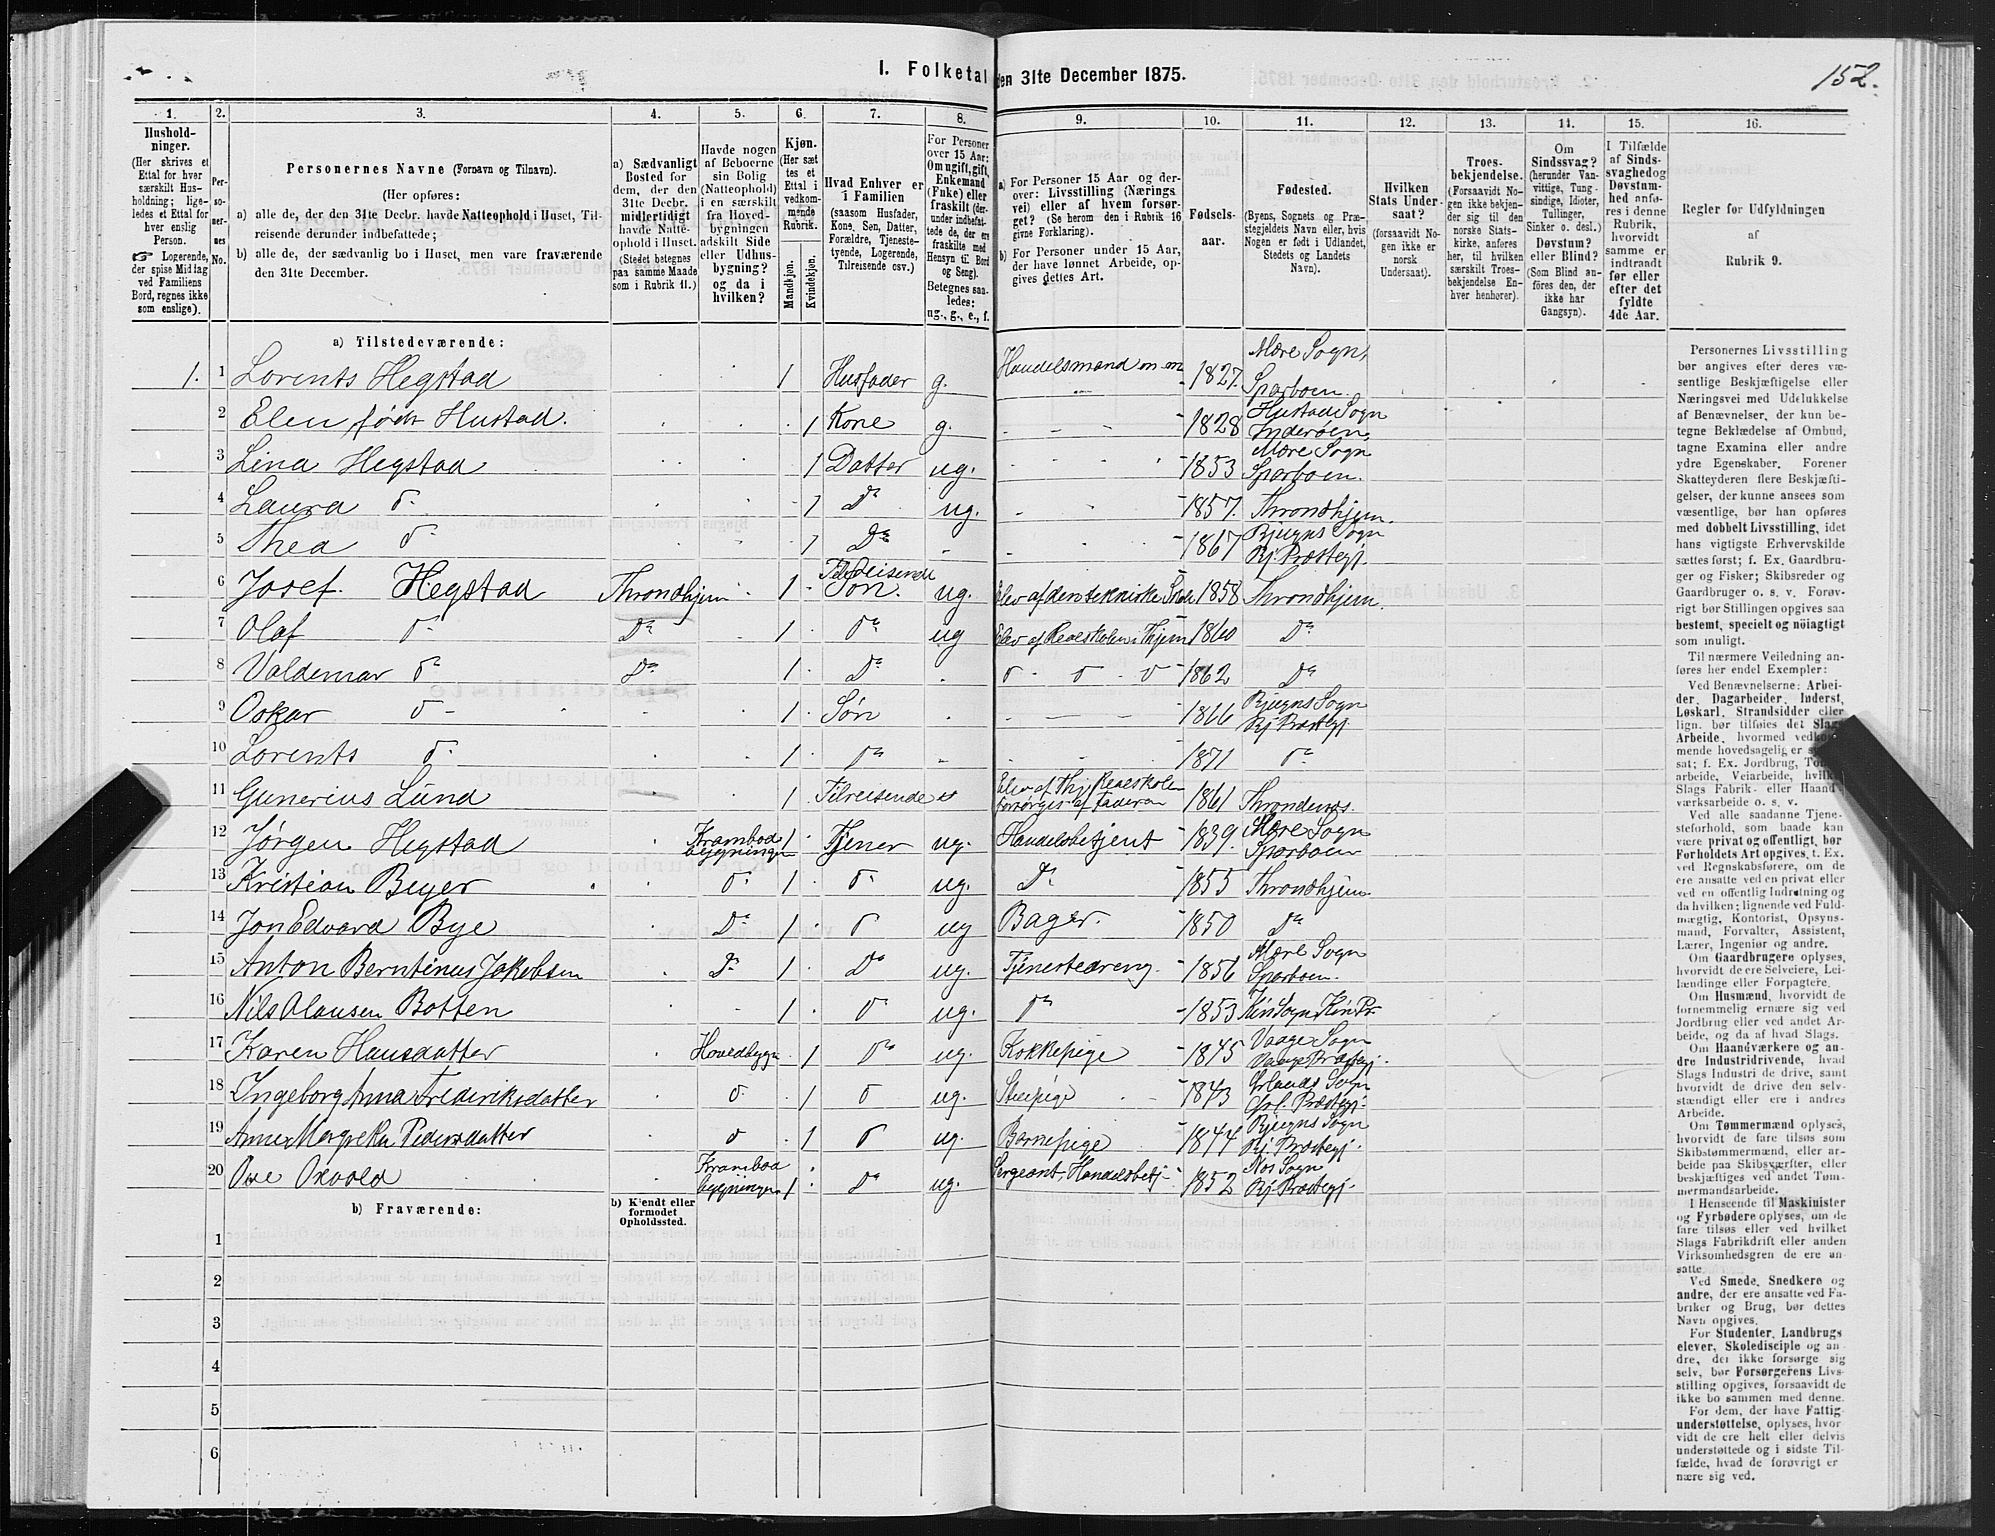 I. Folketal den 31te December 1875.
152.
1. 2. 3. 4. 5. 6. 7. 8. 9. 10. 11. 12. 13. 14. 15. 16.
Hushold-
ninger.
(Her skrives et
Ettal for hver
særskilt Hus-
holdning; lige-
ledes et Ettal for
hver enslig
Person.
☞ Logerende,
der spise Middag
ved Familiens
Bord, regnes ikke
som enslige).
Per-
so-
ner-
nes
No.
Personernes Navne (Fornavn og Tilnavn).
(Her opføres:
a) alle de, der den 31te Decbr. havde Natteophold i Huset, Til-
reisende derunder indbefattede;
b) alle de, der sædvanlig bo i Huset, men vare fraværende
den 31te December.
a) Sædvanligt
Bosted for
dem, der den
31te Decbr.
midlertidigt
havde Natte-
ophold i Huset.
(Stedet betegnes
paa samme Maade
som i Rubrik 11.)
Havde nogen
af Beboerne
sin Bolig
(Natteophold)
i en særskilt
fra Hoved-
bygningen
adskilt Side
eller Udhus-
bygning?
og da i
hvilken?
Kjøn.
(Her sæt
tes et
Ettal i
vedkom-
mende
Rubrik.
Mandkjøn.
Kvindekjøn.
Hvad Enhver er
i Familien
(saasom Husfader,
Kone, Søn, Datter,
Forældre, Tjeneste-
tyende, Logerende,
Tilreisende osv.)
For Personer
over 15 Aar:
Om ugift, gift,
Enkemand
(Enke) eller
fraskilt (der-
under indbefat-
tede de, der ere
fraskilte med
Hensyn til Bord
og Seng).
Betegnes saa-
ledes:
ug., g., e., f.
a) For Personer 15 Aar og der-
over: Livsstilling (Nærings
vei) eller af hvem forsør-
get? (Se herom den i Rubrik 16
givne Forklaring).
b) For Personer under 15 Aar,
der have lønnet Arbeide, op-
gives dettes Art.
Fødsels-
aar.
Fødested.
(Byens, Sognets og Præ-
stegjeldets Navn eller, hvis
Nogen er født i Udlandet,
Stedets og Landets
Navn).
Hvilken
Stats Under-
saat?
(forsaavidt No-
gen ikke er
norsk
Undersaat).
Troes-
bekjendelse.
(Forsaavidt No-
gen ikke bekjen-
der sig til den
norske Stats-
kirke, anføres
her, til hvilken
særskilt Troes-
bekjendelse En-
hver henhører).
Om
Sindssvag?
(herunder Van-
vittige, Tung-
sindige, Idioter,
Tullinger,
Sinker o. desl.)
Døvstum?
eller Blind?
(Som Blind an-
føres den, der
ikke har
Gangsyn).
I Tilfælde
af Sinds-
svaghed og
Døvstum-
hed anfø-
res i denne
Rubrik,
hvorvidt
samme er
indtraadt
før eller
efter det
fyldte
4de Aar.
Regler for Udfyldningen
af
Rubrik 9.
a) Tilstedeværende:
1. 1 Lorents Hegstad 1 Husfader g. Handelsmand m m 1827. Mære Sogn, Sparboen.
2 Elen født Hustad. 1 Kone g. 1828 Hustad Sogn Inderøen.
3 Lina Hegstad 1 Datter ug. 1853 Mære Sogn Sparboen.
4 Laura do 1 Do ug. 1857. Throndhjem.
5 Thea do 1 Do 1867 Bjugns Sogn Bj Præstegj.
6 Josef. Hegstad Throndhjem 1 Tilreisende Søn. ug. Elev af den tekniske Skole 1858 Throndhjem.
7 Olaf do Do 1 do ug Elev af Realskolen i Thjem 1860 Do
8 Valdemar do Do 1 Do do do do 1862 Do
9 Oskar do 1 Søn 1866 Bjugns Sogn Bj Præstegj
10 Lorents do 1 do 1871 do
11 Gunerius Lund 1 Tilreisende Elev af Thj Realskolen forsørges af Faderen 1861 Throndenes.
12 Jørgen Hegstad Krambod bygningen 1 Tjener ug. Handelsbetjent 1839. Mære Sogn Sparboen
13 Kristian Beyer do 1 do ug. Do 1855 Throndhjem
14 Jon Edvard Bye Do 1 do ug Bager. 1850 Do
15 Anton Berntinus Jakobsen Do 1 Do ug. Tjenestedreng. 1856 Mære Sogn Sparboen.
16 Nils Olausen Botten 1 do ug. do 1853 Kin Sogn Kin Pr
17 Karen Hansdatter Hovedbygn 1 Do ug. Kokkepige 1845 Vaage Sogn Vaage Præstegj.
18 Ingeborg Anna Frederiksdatter do 1 do ug. Stuepige 1843 Ørlands Sogn Ørl. Præstegj.
19 Anne Margreta Pedersdatter do 1 do ug. Barnepige 1844 Bjugns Sogn Bj. Præstegj.
20 Ove Oxvold Krambod bygningen 1 Do ug. Sergeant, Handelsbetj 1852 Nes Sogn Bj Præstegj.
b) Fraværende:
b) Kjendt eller
formodet
Opholdssted.
1
2
3
4
5
6
Personernes Livsstilling
bør angives efter deres væ-
sentlige Beskjæftigelse eller
Næringsvei med Udelukkelse
af Benævnelser, der kun be-
tegne Beklædelse af Ombud,
tagne Examina eller andre
ydre Egenskaber. Forener
Skatteyderen flere Beskjæfti-
gelser, der kunne ansees som
væsentlige, bør han opføres
med dobbelt Livsstilling, idet
hans vigtigste Erhvervskilde
sættes først; f. Ex. Gaardbru-
ger og Fisker; Skibsreder og
Gaardbruger o. s. v. Forøv-
rigt bør Stillingen opgives saa
bestemt, specielt og nøiagtigt
som muligt.
Til nærmere Veiledning an-
føres her endel Exempler:
Ved Benævnelserne: Arbei-
der, Dagarbeider, Inderst,
Løskarl, Strandsidder eller
lign. bør tilføies det Slags
Arbeide, hvormed vedkom-
mende hovedsagelig er sys-
sat; f. Ex. Jordbrug, Tom-
arbeide, Veiarbeide, hvilket
Slags Fabrik- eller Haand-
værksarbeide o. s. v.
Ved alle saadanne Tjene-
steforhold, som baade kan
være privat og offentligt, bør
Forholdets Art opgives, t. Ex.
ved Regnskabsførere, om de
ere ansatte ved en privat eller
ved en offentlig Indretning og
da hvilken; lignende ved Fuld-
mægtig, Kontorist, Opsyns-
mand, Forvalter, Assistent,
Lærer, Ingeniør og andre.
Om Gaardbrugere oplyses,
hvorvidt de ere Selveiere, Lei-
lændinge eller Forpagtere.
Om Husmænd, hvorvidt de
fornemmelig ernære sig ved
Jordbrug eller ved andet Ar-
beide, og da af hvad Slags.
Om Haandværkere og an-
dre Industridrivende, hvad
Slags Industri de drive, samt
hvorvidt de drive den selv-
stændigt eller ere i andres
Arbeide.
Om Tømmermænd oplyses,
hvorvidt de fare tilsøs som
Skibstømmermænd, eller ar-
beide paa Skibsværfter, eller
beskjæftiges ved andet Tøm-
mermandsarbeide.
I Henseende til Maskinister
og Fyrbødere oplyses, om de
fare tilsøs eller ved hvilket
Slags Fabrikdrift eller anden
Virksomhedsgren de ere an-
satte.
Ved Smede, Snedkere og
andre, der ere ansatte ved Fa-
briker og Brug, bør dettes
Navn opgives.
For Studenter, Landbrugs
elever, Skoledisciple og an-
dre, der ikke forsørge sig
selv, bør Forsørgerens Livs-
stilling opgives, forsaavidt de
ikke bo sammen med denne.
For dem, der have Fattig-
understøttelse, oplyses, hvor-
vidt de ere helt eller delvis
understøttede og i sidste Til-
fælde, hvad de forøvrigt er
nære sig ved.